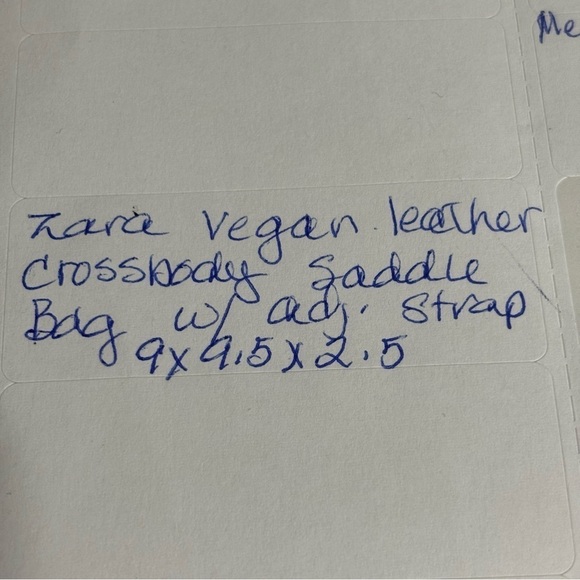 Me
Zara vegan leather
Crossbody Saddle
Bag w/ adj. strap
9x9.5x2.5